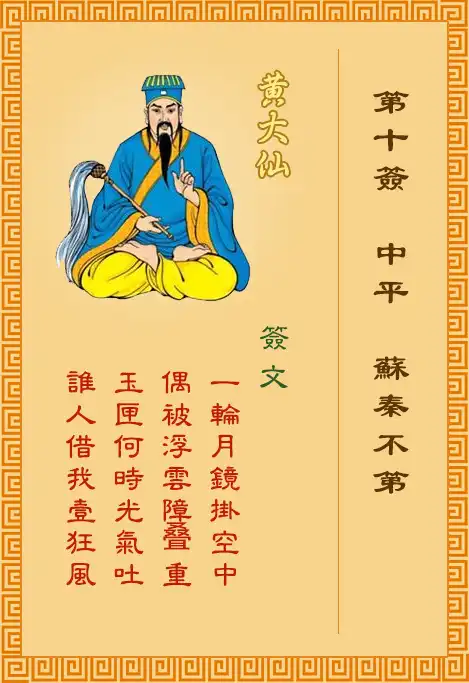 第十簽 中平 蘇秦不第
黃大仙
簽文
一輪月鏡掛空中
偶被浮雲障疊重
玉匣何時光氣吐
誰人借我壹狂風